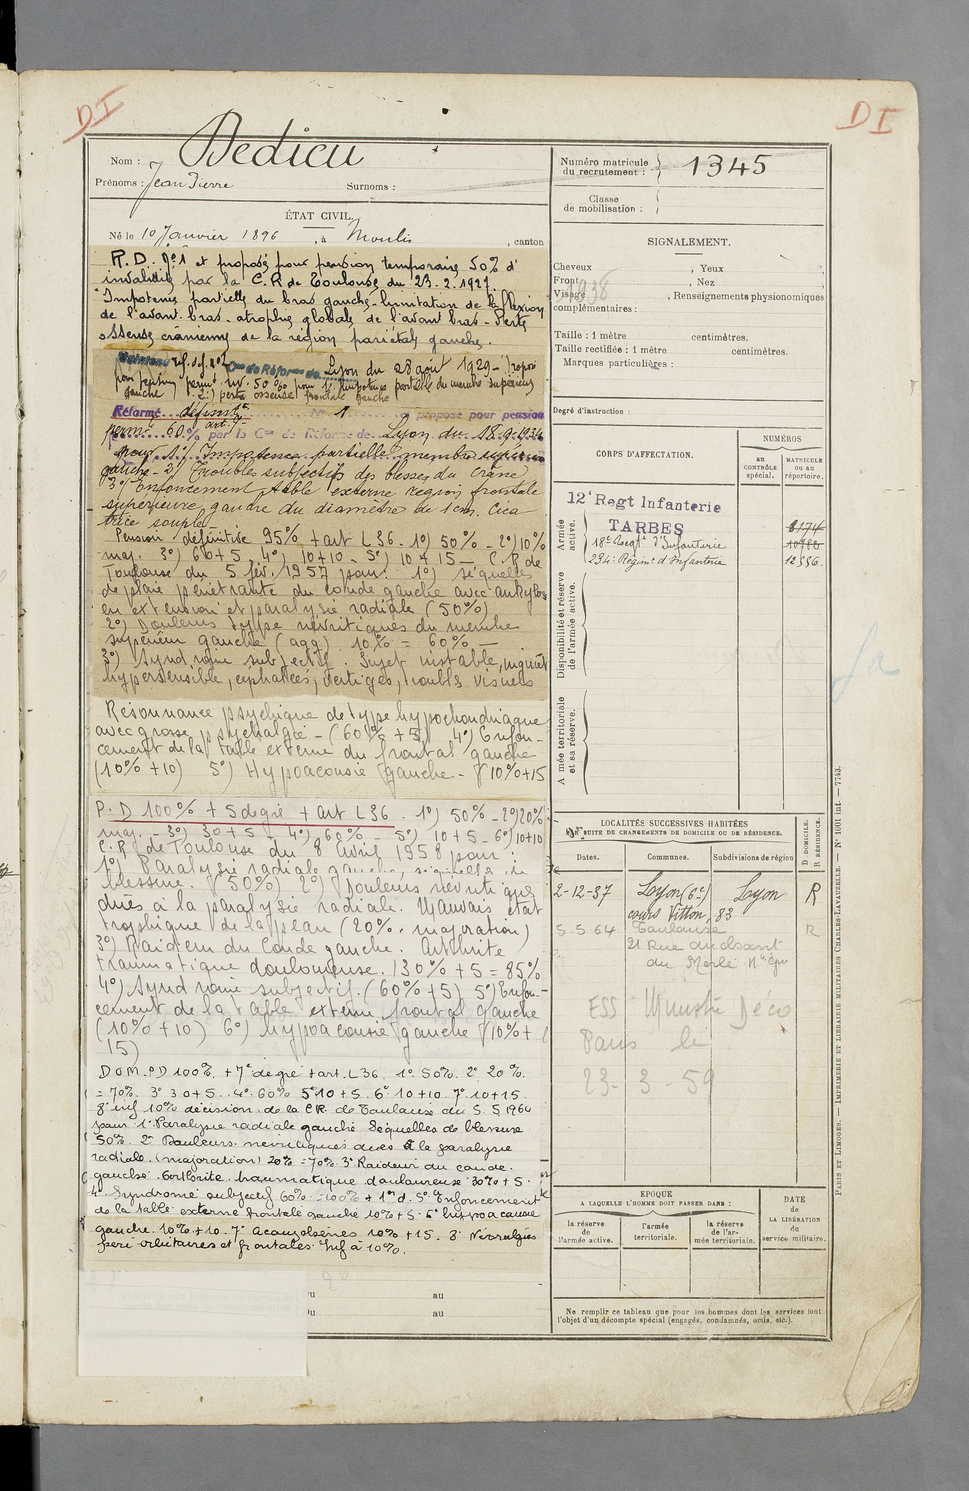 DI
DI
Nom : Dedieu
Prénoms : Jean Pierre
Surnoms :
ÉTAT CIVIL.
Né le 10 Janvier 1896, à Moulis, canton
R.D. N°1 et proposé pour pension temporaire 50% d'
invalidité par la C.R de Toulouse du 23.2.1927.
Impotence partielle du bras gauche - limitation de la flexion
de l'avant-bras - atrophie globale de l'avant bras - Perte
osseuse crânienne de la région pariétale gauche.
réf. déf. n°1 Con de Réforme de Lyon du 28 août 1929 - Proposé
pour pension perm. inv. 50% pour 1°) impotence partielle du membre supérieur
gauche 2°) perte osseuse frontale gauche
Réformé définitt N° 1 a proposé pour pension
perm. 60% art 7 par la Con de Réforme de Lyon du 18.9.1934
pour 1°) Impotence partielle membre supérieur
gauche - 2) Troubles subjectifs des blessés du Crâne
3°) Enfoncement table externe region frontale
superieure gauche du diamètre de 1cm. Cica
trice souple
Pension définitive 95% + art L36. 1°) 50% - 2°) 10%
maj. 3°) 60+5 4°) 10+10 - 5°) 10+15 - C.R de
Toulouse du 5 fév. 1957 pour : 1°) séquelles
de plaie pénétrante du coude gauche avec ankylose
en extension et paralysie radiale (50%)
2°) Douleurs type névritiques du membre
supérieur gauche (agg) 10% = 60% -
3°) Syndrome subjectif. Sujet instable, inquiet
hypersensible, céphalées, vertiges, troubles visuels
Résonnance psychique de type hypochondriaque
avec grosse psychalgie - (60% + 5) 4°) Enfon-
cement de la table externe du frontal gauche
(10% + 10) 5°) Hypoacousie gauche - (10% + 15
P.D 100% + 5 degré + art L36 - 1°) 50% - 2°) 20%
maj. - 3°) 30+5 - 4°) 60% - 5°) 10+5 - 6°) 10+10
C.R de Toulouse du 8 Avril 1958 pour :
1°) Paralysie radiale gauche, séquelles de
blessure. (50%) 2°) Douleurs névritiques
dues à la paralysie radiale. Mauvais état
trophique de la peau (20% majoration)
3°) Raideur du Coude gauche. Arthrite
traumatique douloureuse. (30% + 5 = 85%
4°) Syndrome subjectif. (60% + 5) 5°) Enfon-
cement de la table externe frontal gauche
(10% + 10) 6°) hypoacousie gauche (10% +
15)
DOM. PD 100% + 7° degré + art. L36. 1° 50% 2° 20%
= 70%. 3° 30+5. 4° 60% 5° 10+5. 6° 10+10 7° 10+15.
8° inf 10% décision de la C.R. de Toulouse du 5.5.1964
pour 1° Paralysie radiale gauche Séquelles de blessure
50%. 2° Douleurs névritiques dues à la paralysie
radiale. (majoration) 20% = 70% 3° Raideur du coude
gauche. Arthrite traumatique douloureuse 30% + 5.
4° Syndrome subjectif 60% = 100% + 1er d. 5° Enfoncement
de la table externe frontale gauche 10% + 5. 6° hypoacousie
gauche 10% + 10. 7° acouphènes 10% + 15. 8° Névralgies
péri orbitaires et frontales inf à 10%.
au
au
Numéro matricule du recrutement : 1345
Classe de mobilisation :
SIGNALEMENT.
Cheveux , Yeux
Front , Nez
Visage , Renseignements physionomiques
complémentaires :
1938
Taille : 1 mètre centimètres.
Taille rectifiée : 1 mètre centimètres.
Marques particulières :
Degré d'instruction :
CORPS D'AFFECTATION.
NUMÉROS
au CONTRÔLE spécial.
MATRICULE ou au répertoire.
Armée active.
12e Regt Infanterie
TARBES 8174
18e Regt d'Infanterie 10782
234e Régimt d'Infanterie 12556
Disponibilité et réserve de l'armée active.
Armée territoriale et sa réserve.
LOCALITÉS SUCCESSIVES HABITÉES
PAR SUITE DE CHANGEMENTS DE DOMICILE OU DE RÉSIDENCE.
D DOMICILE.
R RÉSIDENCE.
Dates. Communes. Subdivisions de région
2-12-37 Lyon (6e) Lyon R
cours Vitton, 83
5.5.64 Toulouse R
21 Rue
du Merle
ESS Ministr Déco
Paris le
23-3-59
EPOQUE
A LAQUELLE L'HOMME DOIT PASSER DANS :
la réserve de l'armée active.
l'armée territoriale.
la réserve de l'armée territoriale.
DATE de LA LIBÉRATION du service militaire.
Ne remplir ce tableau que pour les hommes dont les services font
l'objet d'un décompte spécial (engagés, condamnés, omis, etc.).
PARIS ET LIMOGES. — IMPRIMERIE ET LIBRAIRIE MILITAIRES CHARLES-LAVAUZELLE. — N° 1001 int. — 7743.